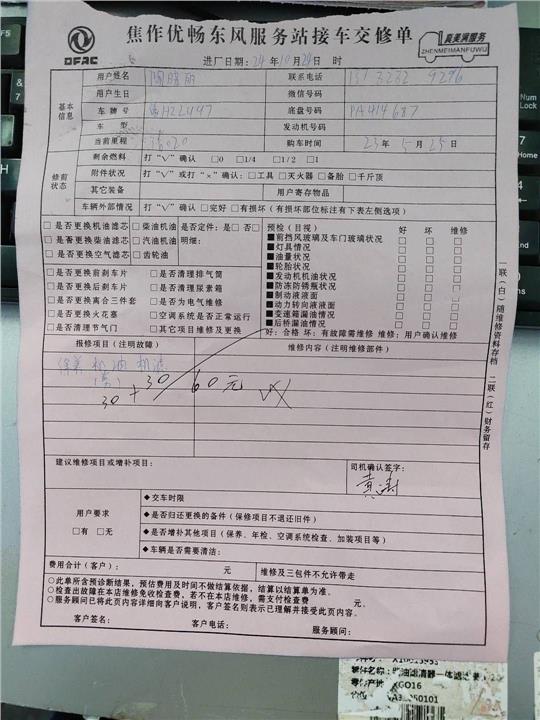 DFAC
焦作优畅东风服务站接车交修单
真美满服务
ZHENMEIMANFUWU
进厂日期：24年10月24日 时
基本信息
用户姓名
联系电话
9296
用户生日
微信号码
车牌号
H22L497
底盘号码
PA414687
车型
发动机号码
当前里程
购车时间
23年5月25日
修前状态
剩余燃料 打“V”确认 □0 □1/4 □1/2 □1
附件状况 打“V”或打“×”确认：□工具 □灭火器 □备胎 □千斤顶
其它装备
用户寄存物品
车辆外部情况 打“V”确认 □完好 □有损坏（有损坏部位标注有下表左侧选项）
□是否更换机油滤芯 □柴油机油 是否定件：是□否□
□是否更换柴油滤芯 □汽油机油 明细：
□是否更换空气滤芯 □齿轮油
□是否更换前刹车片 □是否清理排气筒
□是否更换后刹车片 □是否清理尿素箱
□是否更换离合三件套 □是否为电气维修
□是否更换火花塞 □空调系统是否正常运行
□是否清理节气门 □其它项目维修及更换
预检（目视） 好 坏 维修
■前挡风玻璃及车门玻璃状况 □ □ □
■灯具情况 □ □ □
■油量状况 □ □ □
■轮胎状况 □ □ □
■发动机机油状况 □ □ □
■防冻防锈瓶状况 □ □ □
■制动液液面 □ □ □
■动力转向液液面 □ □ □
■变速箱漏油情况 □ □ □
■后桥漏油情况 □ □ □
好：合格 坏：有故障需维修 维修：用户确认维修
报修项目（注明故障）
维修内容（注明维修部件）
保养 机油 机滤
30+30 60元
建议维修项目或增补项目：
司机确认签字：
用户要求
□有 □无
◆交车时限
◆是否归还更换的备件（保修项目不退还旧件）
◆是否增补其他项目（保养、年检、空调系统检查、加装项目等）
◆车辆是否需要清洁：
费用合计（客户）： 元
维修及三包件不允许带走
○此单所含预诊断结果，预估费用及时间不做结算依据，结算以结算单为准。
○检查出故障在本店维修免收检查费，若不在本店维修，需支付检查费 元。
○服务顾问已将此页内容详细向客户说明，客户签名则表示已理解并接受此页内容。
客户签名： 客户电话： 服务顾问：
一联（白）随维修资料存档
二联（红）财务留存
Num Lock
Home
零件名称：
XGO16